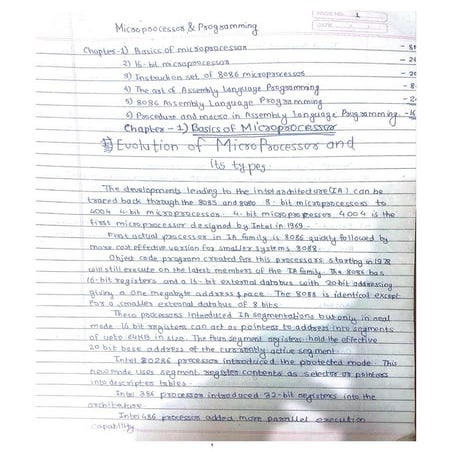 PAGE NO. 1
Microprocessor & Programming
Chapter-1) Basics of microprocessor
2) 16-bit microprocessor
3) Instruction set of 8086 microprocessor
4) The art of Assembly Language Programming
5) 8086 Assembly Language Programming
6) Procedure and macro in Assembly Language Programming
Chapter-1) Basics of Microprocessor
1) Evolution of MicroProcessor and
its types.
The developments leading to the intel architecture (IA) can be
traced back through the 8085 and 8080 8-bit microprocessors to
4004 4-bit microprocessor. 4-bit microprocessor 4004 is the
first microprocessor designed by Intel in 1969.
First actual processor in IA family is 8086 quickly followed by
more cost effective version for smaller systems 8088.
Object code program created for this processors starting in 1978
will still execute on the latest members of the IA family. The 8086 has
16-bit registers and a 16-bit external databus with 20-bit addressing
giving a one megabyte address space. The 8088 is identical except
for a smaller external databus of 8 bits.
These processors introduced IA segmentations but only in real
mode. 16 bit registers can act as pointers to address into segments
of upto 64KB in size. The four segment registers hold the effective
20 bit base address of the currently active segment.
Intel 80286 processor introduced the protected mode. This
new mode uses segment register contents as selector or pointers
into descriptor tables.
Intel 386 processor introduced 32-bit registers into the
architecture.
Intel 486 processor added more parallel execution
capability.